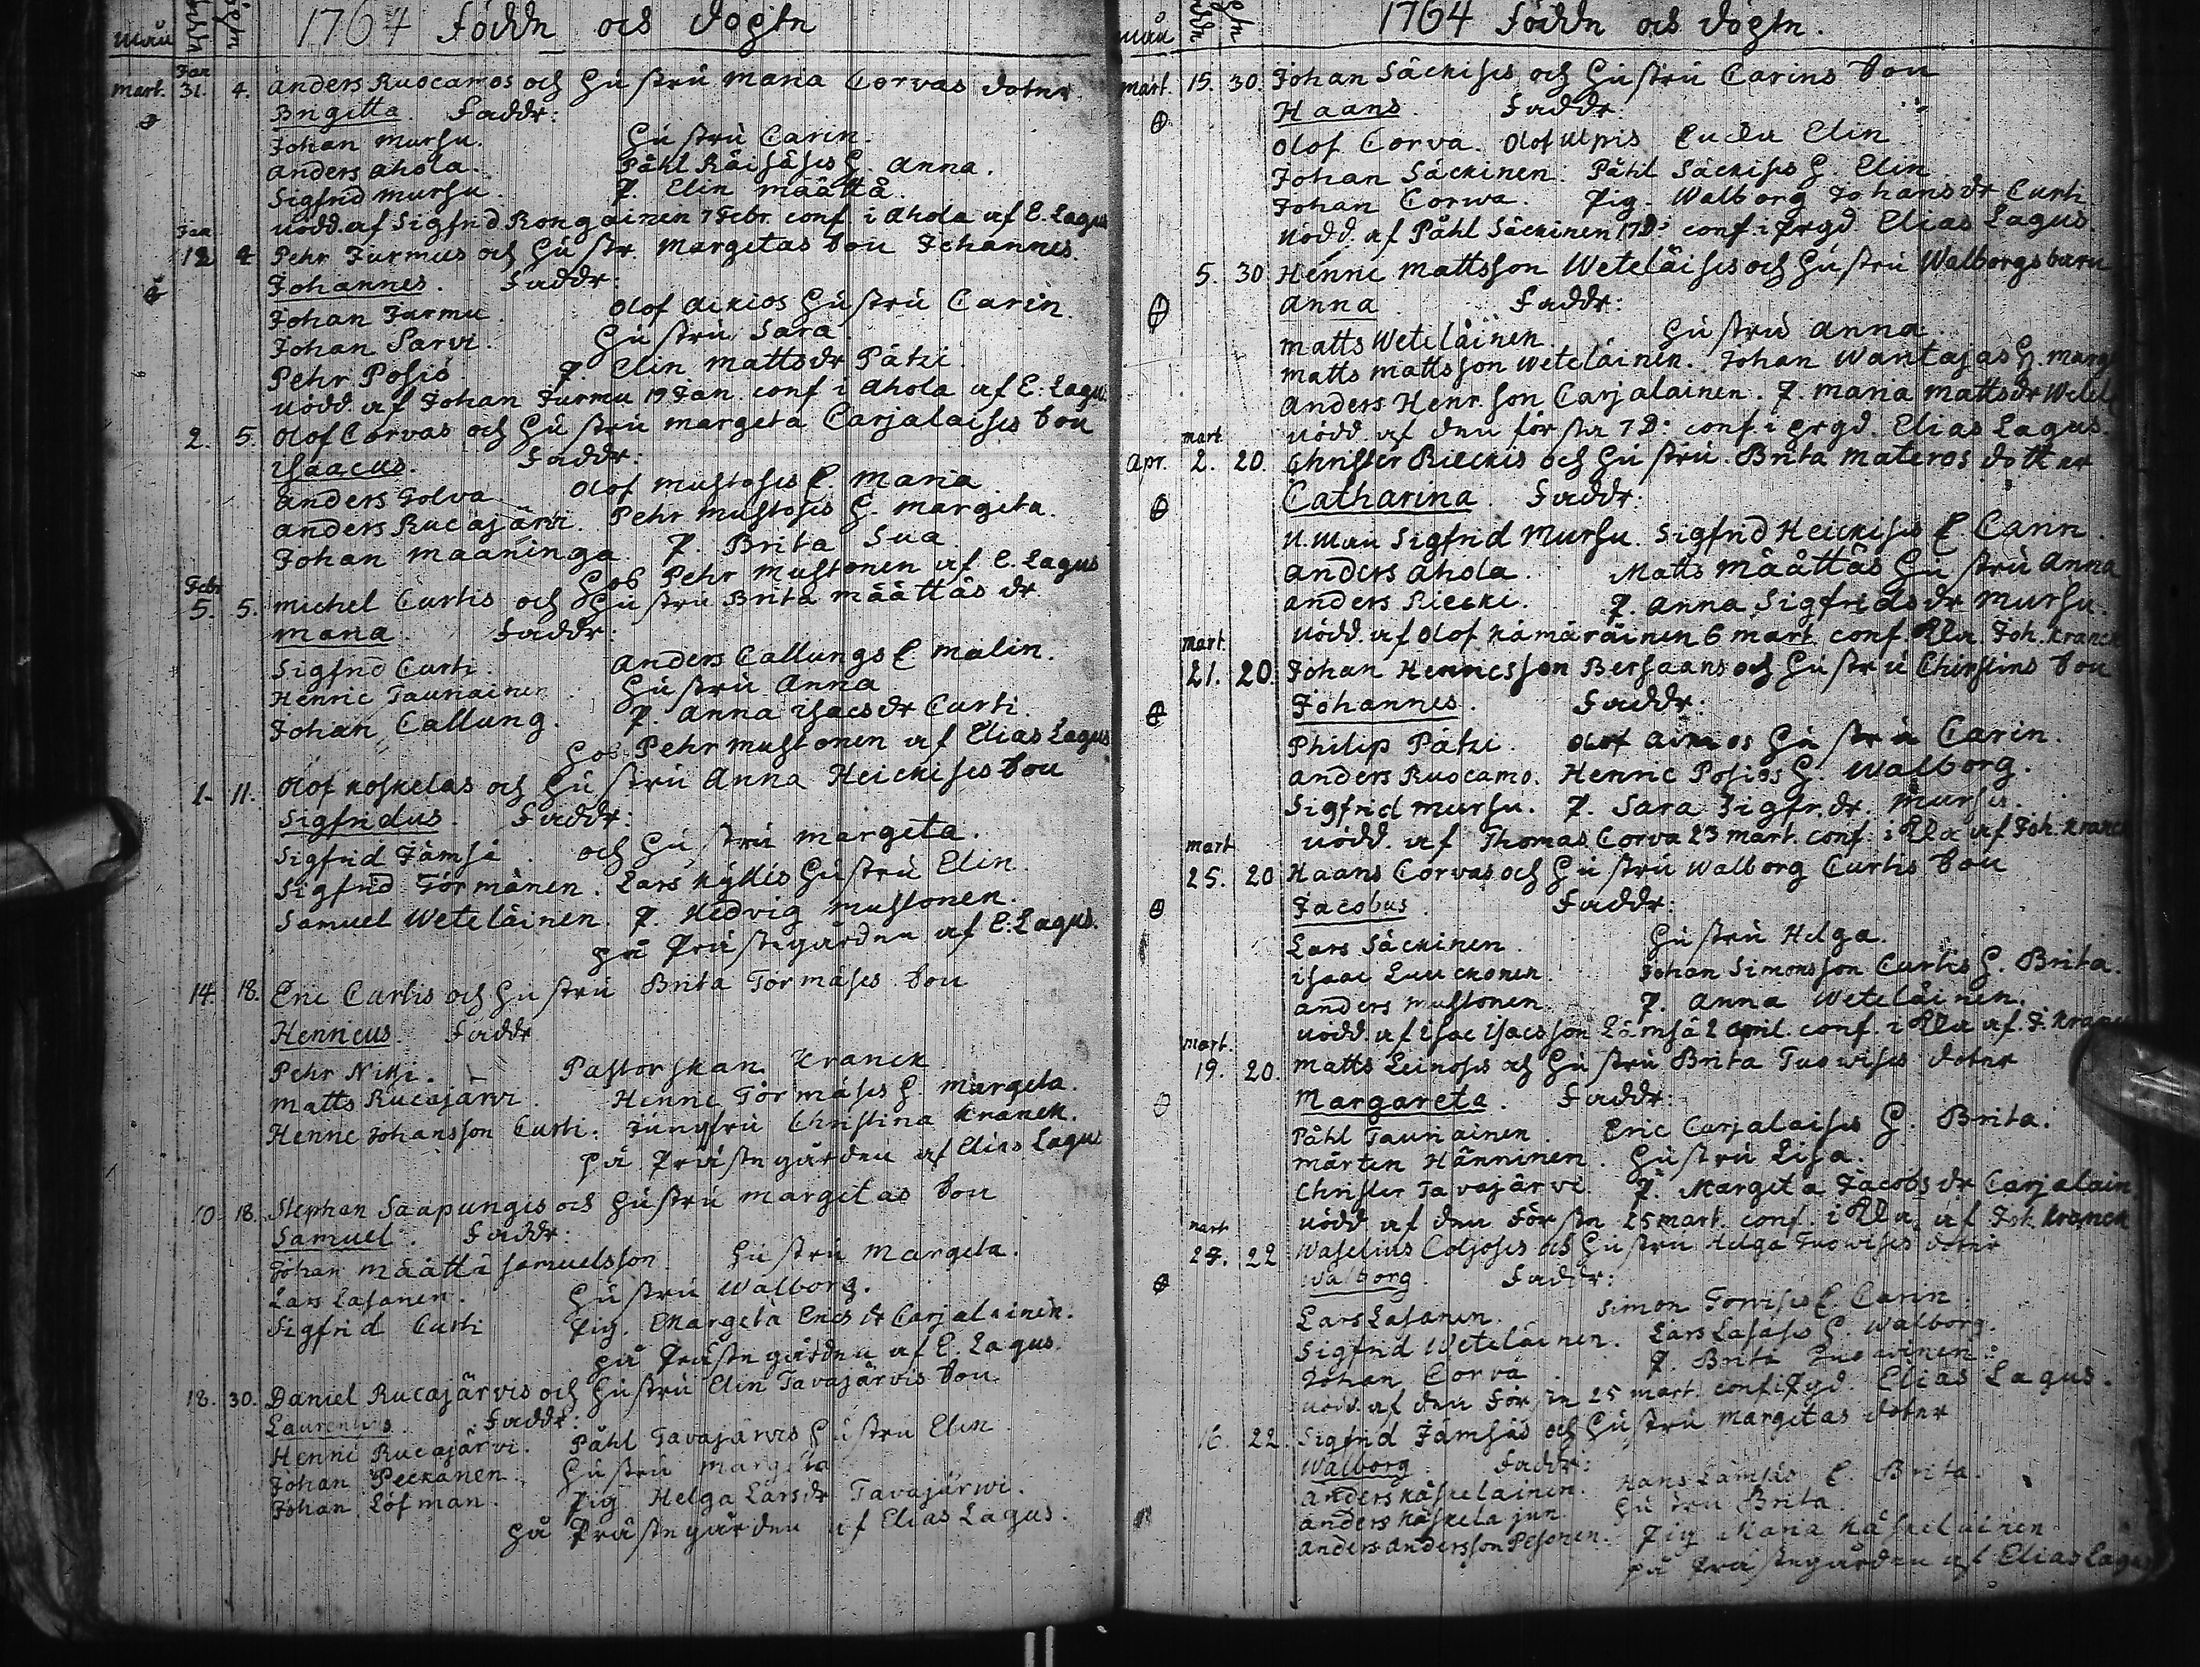 1764 födde och döpte
Mån
Jan
Mart. 31. 4. Anders Ruocamos och Hustru Maria Corvas dotter
Brigitta. Faddr:
Johan Mursu. Hustru Carin.
Anders Ahola. Påhl Räisäses H. Anna.
Sigfrid Mursu. P. Elin Määttä.
Nödd. af Sigfrid Rongainen 7 Febr. conf. i Ahola af E. Lagus
Jan
12 4 Pehr Jurmus och Hustr. Margetas Son Johannes.
Johannes. Faddr:
Johan Jurmu. Olof Aikios Hustru Carin.
Johan Sarvi. Hustru Sara
Pehr Posio P. Elin Mattsdr Pätzi.
Nödd. af Johan Jurmu 19 Jan. conf. i Ahola af E. Lagus
2. 5. Olof Corvas och Hustru Margeta Carjalaises Son
Isaacus. Faddr:
Anders Golva Olof Mustoses E. Maria
Anders Rucajärvi. Pehr Mustoses H. Margeta.
Johan Maaninga P. Brita Sua
Hos Pehr Mustonen af E. Lagus
Febr
5. 5. Michel Curtis och Hustru Brita Määttäs dr
Maria. Faddr:
Sigfrid Curti. Anders Callungs E. Malin.
Henric Tauriainen Hustru Anna
Johan Callung. P. Anna Isacsdr Curti.
Hos Pehr Mustonen af Elias Lagus
1. 11. Olof Koskelas och Hustru Anna Heickises Son
Sigfridus. Faddr:
Sigfrid Jämsä. och Hustru Margeta.
Sigfrid Törmänen. Lars Kyllis Hustru Elin.
Samuel Weteläinen. P. Hedvig Mustonen.
på Prästegården af E. Lagus.
14. 18. Eric Curtis och Hustru Brita Törmäses Son
Henricus. Faddr
Pehr Niki. Pastorskan Kranck
Matts Rucajärvi. Henric Törmäses H. Margeta.
Henric Johansson Curti. Jungfru Christina Kranck.
på Prästegården af Elias Lagus
10 18. Stephan Saapungis och Hustru Margetas Son
Samuel. Faddr:
Johan Määttä Samuelsson. Hustru Margeta.
Lars Lasanen. Hustru Walborg.
Sigfrid Curti Pig. Margeta Ericsdr Carjalainen.
på Prästegården af E. Lagus.
18. 30. Daniel Rucajärvis och Hustru Elin Tavajärvis Son
Laurentius. Faddr:
Henric Rucajärvi. Påhl Tavajärvis Hustru Elin
Johan Peckanen. Hustru Margeta
Johan Löfman. Pig Helga Larsdr Tavajärwi.
på Prästegården af Elias Lagus.
1764 födde och döpte.
Mån
Mart. 15. 30. Johan Säckises och Hustru Carins Son
Haans. Faddr.
Olof Corva. Olof Ulpis Enka Elin
Johan Säckinen. Påhl Säckises H. Elin
Johan Corwa. Pig. Walborg Johansdr Curti
Nödd. af Påhl Säckinen 17 D: conf. i Prgd. Elias Lagus.
5. 30 Henric Mattsson Weteläises och Hustru Walborgs barn
Anna Faddr:
Matts Weteläinen Hustru Anna
Matts Mattsson Weteläinen. Johan Wantajas H. Marg
Anders Henr.son Carjalainen. P. Maria Mattsdr Wetel
Nödd. af den förstn 7 D: conf. i Prgd. Elias Lagus.
mart
Apr. 2. 20. Christer Rieckis och Hustru Brita Materos dotter
Catharina. Faddr:
N.man Sigfrid Mursu. Sigfrid Heickises E. Carin
Anders Ahola. Matts Määttäs Hustru Anna
Anders Riecki. P. Anna Sigfridsdr Mursu.
Nödd. af Olof Kämäräinen 6 mart. conf. Joh. Kranck
mart.
21. 20. Johan Henricsson Bersaans och Hustru Chirstins Son
Johannes. Faddr:
Philip Pätzi. Olof Aikios Hustru Carin.
Anders Ruocamo. Henric Posios H. Walborg.
Sigfrid Mursu. P. Sara Sigfr.dr Mursu.
mart Nödd. af Thomas Corva 23 mart. conf. i af Joh. Kranck
25. 20 Haans Corvas och Hustru Walborg Curtis Son
Jacobus. Faddr:
Lars Säckinen. Hustru Helga.
Isaac Luuckonen. Johan Simonsson Curtis H. Brita.
Anders Mustonen P. Anna Weteläinen.
Nödd. af Isac Isacsson Lämsä 2 April. conf. i af J. Kranck
mart.
19. 20. Matts Leinoses och Hustru Brita Tuowises dotter
Margareta. Faddr:
Påhl Tauriainen. Eric Carjalaises H. Brita.
Mårten Hänninen. Hustru Lisa.
Christer Tavajärvi. P. Margeta Jacobsdr Carjalain.
mart Nödd. af den förstn 25 mart. conf. i af Joh. Kranck
24. 22 Waselius Coljoses och Hustru Helga Tuowises dotter
Walborg. Faddr:
Lars Lasanen. Simon Tornises E. Carin.
Sigfrid Weteläinen. Lars Lasases H. Walborg.
Johan Corva P. Brita
Nödd. af den förstn 25 mart. conf. i Pgd. Elias Lagus.
16. 22. Sigfrid Jämsäs och Hustru Margetas dotter
Walborg. Faddr:
Anders Käskelainen. Hans Lämsäs E. Brita.
Anders Käskela jun. Hustru Brita.
Anders Andersson Pesonen. Pig Maria Käskelainen
på Prästegården af Elias Lagus